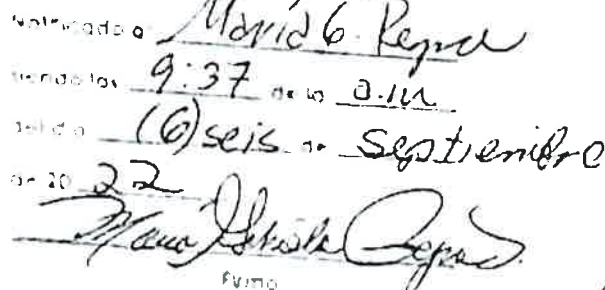 Notificado a María G. Reyna
siendo las 9:37 de la a.m
del día (6) seis de septiembre
de 20 22
María Gabriela
Firma